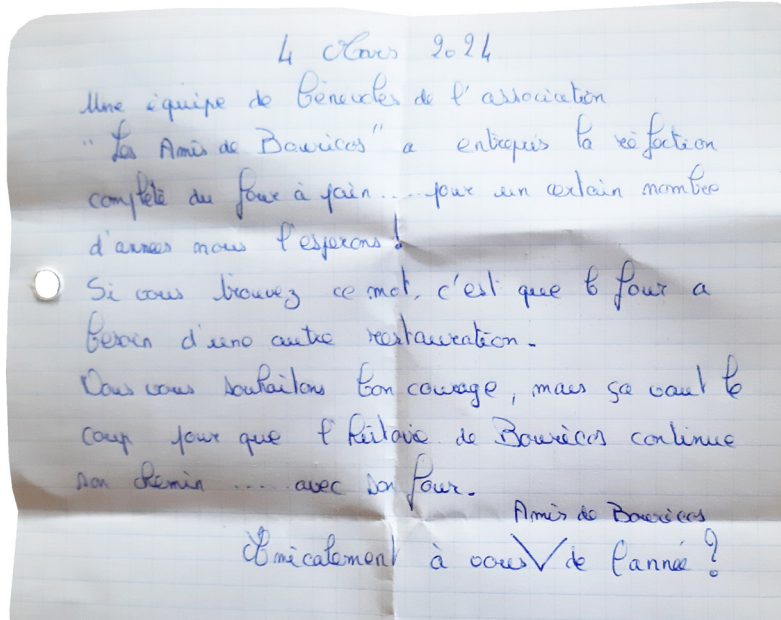 4 Mars 2024
Une équipe de bénévoles de l'association
"Les Amis de Bouricos" a entrepris la réfection
complète du four à pain.....pour un certain nombre
d'années nous l'espérons !
Si vous trouvez ce mot, c'est que le four a
besoin d'une autre restauration.
Nous vous souhaitons bon courage, mais ça vaut le
coup pour que l'histoire de Bouricos continue
son chemin ..... avec son four.
Amis de Bouricos
Amicalement à vous V de l'année ?